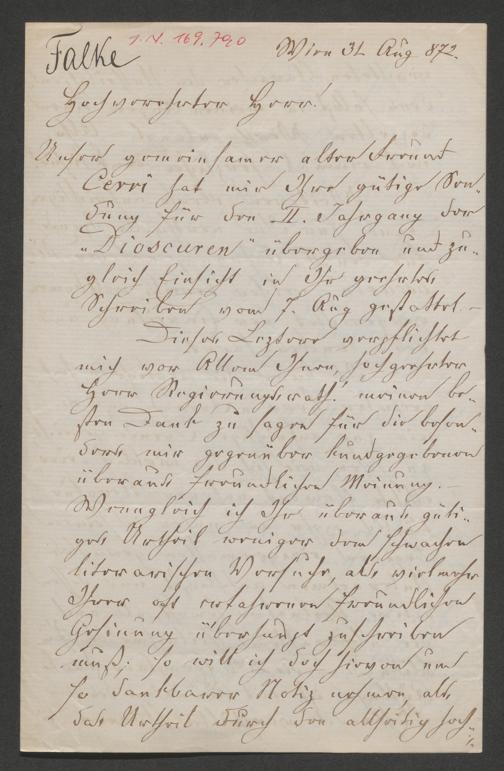 Falke
I.N. 169.790
Wien 31 Aug 872.
Hochverehrter Herr!
Unser gemeinsamer alter Freund
Cerri hat mir Ihre gütige Sen-
dung für den II. Jahrgang der
„Dioscuren" übergeben und zu-
gleich Einsicht in Ihr geehrtes
Schreiben vom 7. Aug gestattet. –
Dieses Leztere verpflichtet
mich vor Allem Ihnen, hochgeehrter
Herr Regierungsrath! meinen be-
sten Dank zu sagen für die beson-
ders mir gegenüber kundgegebenen
überaus freundlichen Meinung. –
Wenngleich ich Ihr überaus güti-
ges Urtheil weniger dem schwachen
literarischen Versuche, als vielmehr
Ihrer oft erfahrenen freundlichen
Gesinung überhaupt zuschreiben
muß; so will ich doch hievon um
so dankbarer Notiz nehmen, als
das Urtheil durch den allseitig hoch-